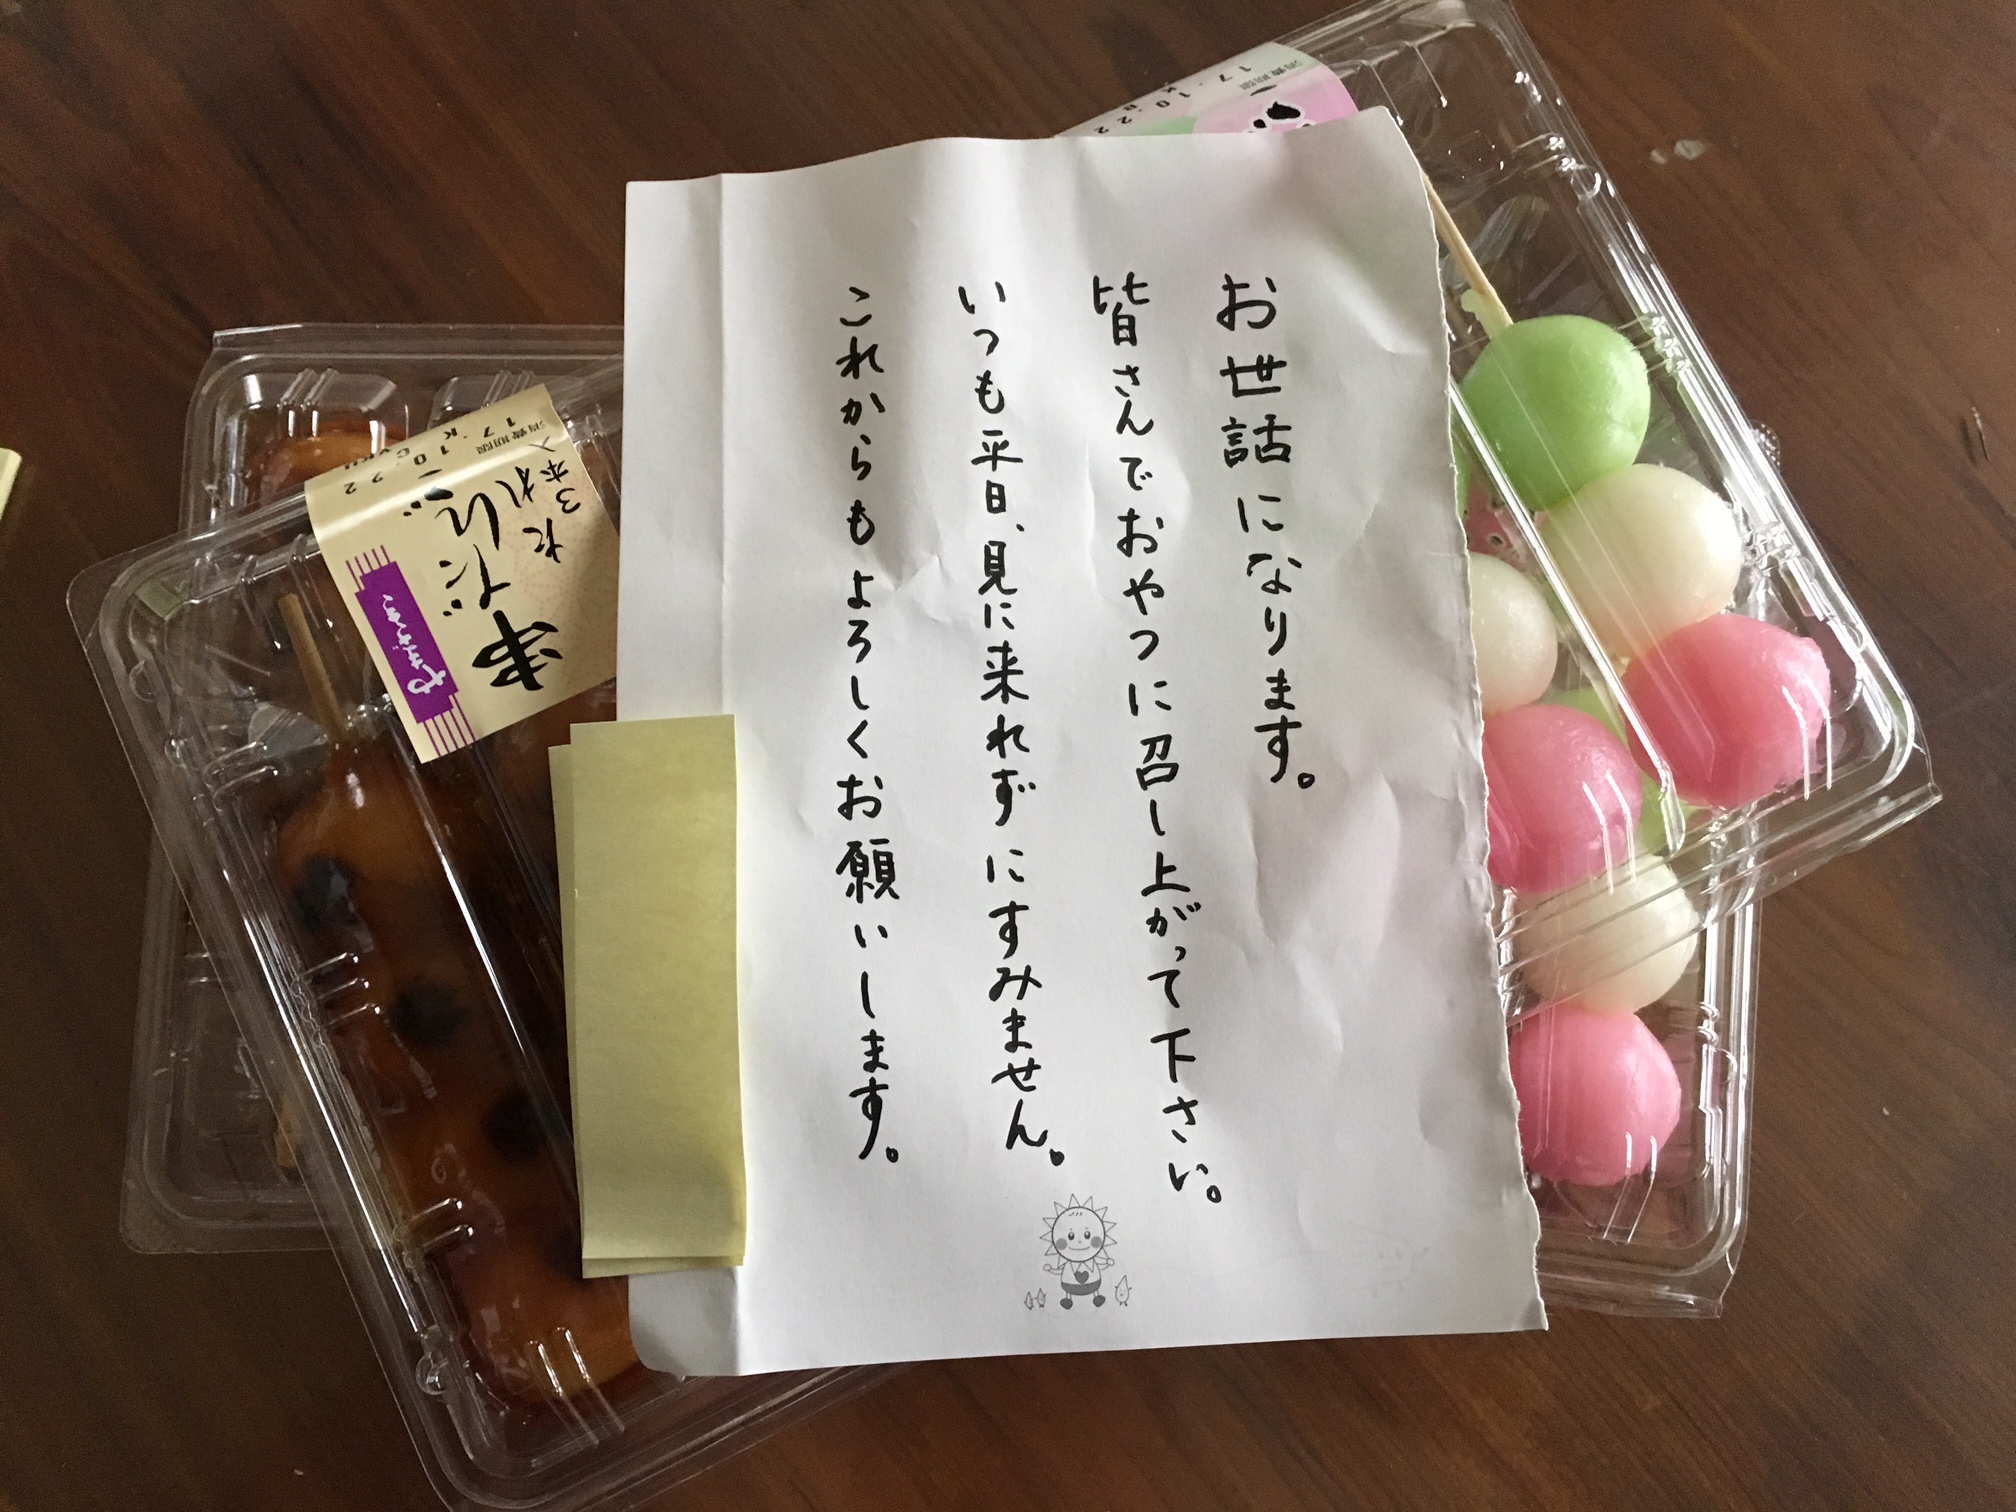 お世話になります。
皆さんでおやつに召し上がって下さい。
いつも平日、見に来れずにすみません。
これからもよろしくお願いします。
串だんご
たれ
3本入
消費期限
17.10.22
消費期限
17.10.22